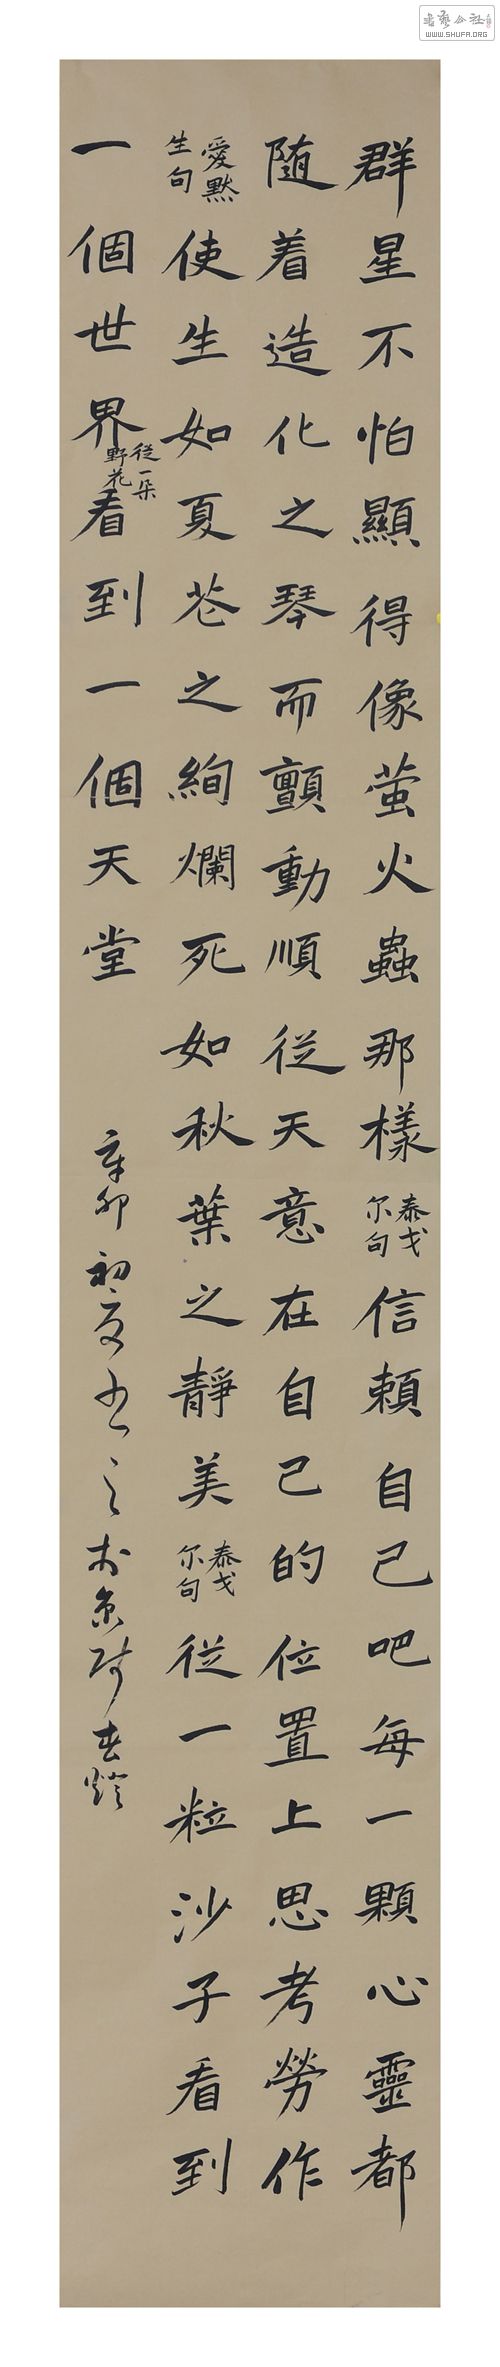 書藝公社
WWW.SHUFA.ORG
群星不怕顯得像萤火蟲那樣泰戈尔句信頼自己吧每一顆心靈都
随着造化之琴而顫動順從天意在自己的位置上思考勞作
愛默生句使生如夏花之絢爛死如秋葉之靜美泰戈尔句從一粒沙子看到
一個世界從一朵野花看到一個天堂
辛卯初夏書之於京